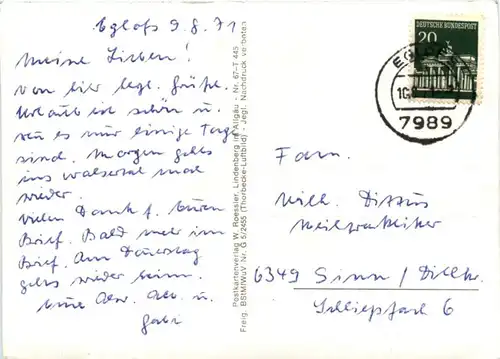 Eglofs 9.8.71
Meine Lieben!
Von hier herzl. Grüße.
Urlaub ist schön u.
wenn es nur einige Tage
sind. Morgen gehts
ins Walsertal mal
wieder.
Vielen Dank f. Euren
Brief. Bald mehr im
Brief. Am Dienstag
gehts wieder heim.
Eure u.
Gabi
Postkartenverlag W. Roessler, Lindenberg im Allgäu - Nr. 67-IT 445
Freig. BStMfWuV Nr. G 5/2455 (Thorbecke-Luftbild) - Jegl. Nachdruck verboten
DEUTSCHE BUNDESPOST
20
7989
Fam.
Wilh. Dittus
Heilpraktiker
6349 Sinn / Dillkr.
6